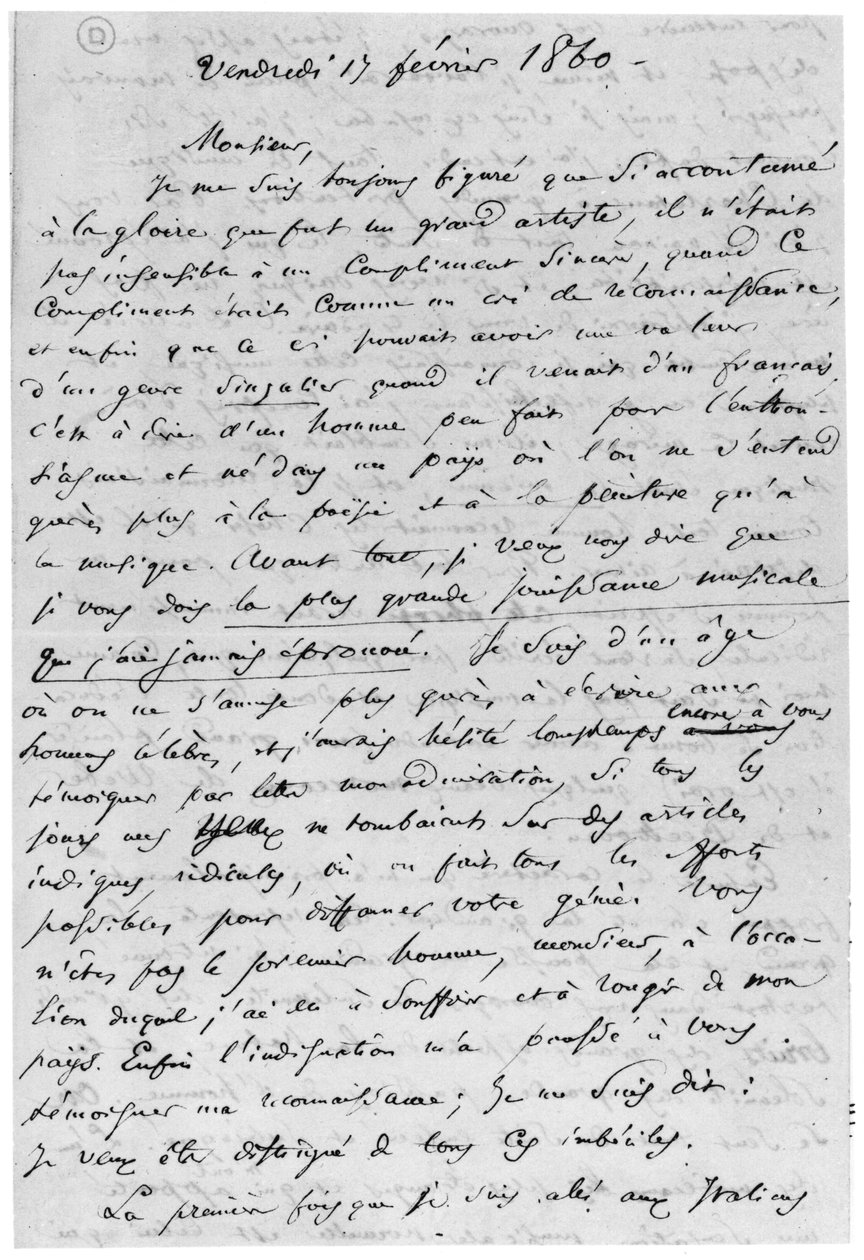 Vendredi 17 février 1860 -
Monsieur,
Je me suis toujours figuré que si accoutumé
à la gloire que fut un grand artiste, il n'était
pas insensible à un compliment sincère, quand ce
compliment était comme un cri de reconnaissance,
et enfin que ce cri pouvait avoir une valeur
d'un genre singulier quand il venait d'un français
c'est à dire d'un homme peu fait pour l'enthou-
siasme et né dans un pays où l'on ne s'entend
guères plus à la poësie et à la peinture qu'à
la musique. Avant tout, je veux vous dire que
je vous dois la plus grande jouissance musicale
que j'aie jamais éprouvée. Je suis d'un âge
où on ne s'amuse plus guères à écrire aux
hommes célèbres, et j'aurais hésité longtemps encore à vous
témoigner par lettre mon admiration, si tous les
jours mes yeux ne tombaient sur des articles
indignes, ridicules, où on fait tous les efforts
possibles pour diffamer votre génie. Vous
n'êtes pas le premier homme, monsieur, à l'occa-
sion duquel j'ai eu à souffrir et à rougir de mon
pays. Enfin l'indignation m'a poussé à vous
témoigner ma reconnaissance; je me suis dit:
je veux être distingué de tous ces imbéciles.
La première fois que je suis allé aux Italiens